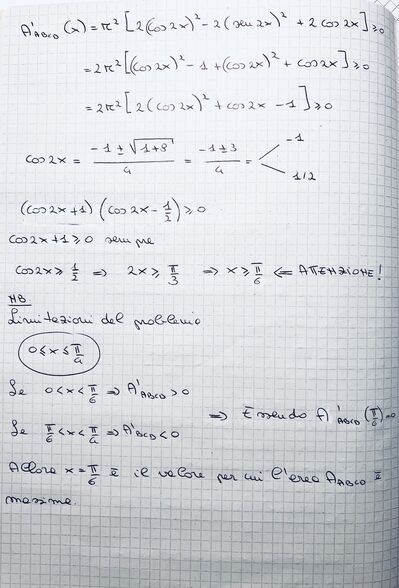 A'ABCD (x) = r² [2(cos 2x)² - 2(sen 2x)² + 2 cos 2x] ≥ 0
= 2r² [(cos 2x)² - 1 + (cos 2x)² + cos 2x] ≥ 0
= 2r² [2(cos 2x)² + cos 2x - 1] ≥ 0
cos 2x = (-1 ± √(1+8))/4 = (-1 ± 3)/4 = -1
1/2
(cos 2x + 1) (cos 2x - 1/2) ≥ 0
cos 2x + 1 ≥ 0 sempre
cos 2x ≥ 1/2 ⇒ 2x ≥ π/3 ⇒ x ≥ π/6 ⇐ ATTENZIONE!
NB
Limitazioni del problema
0 ≤ x ≤ π/4
Se 0 < x < π/6 ⇒ A'ABCD > 0
⇒ Essendo A'ABCD (π/6) = 0
Se π/6 < x < π/4 ⇒ A'BCD < 0
Allora x = π/6 è il valore per cui l'area AABCD è
massima.